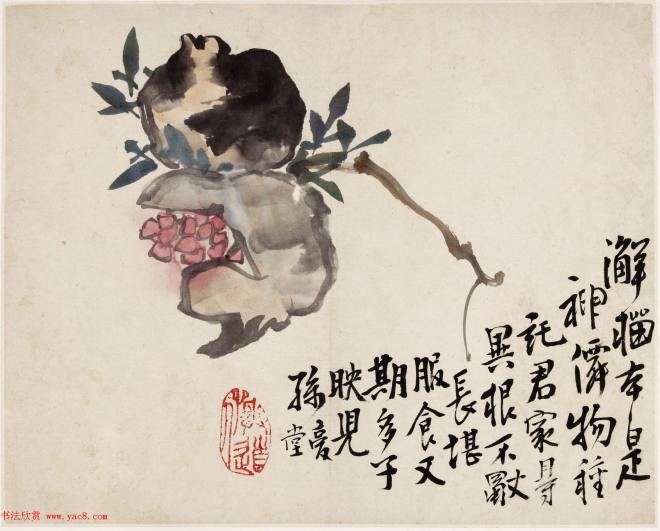 澥榴本是
神僊物種
託君家㝵
異根不
長堪
服食又
期多子
映兒
孫
堂
书法欣赏 www.yac8.com